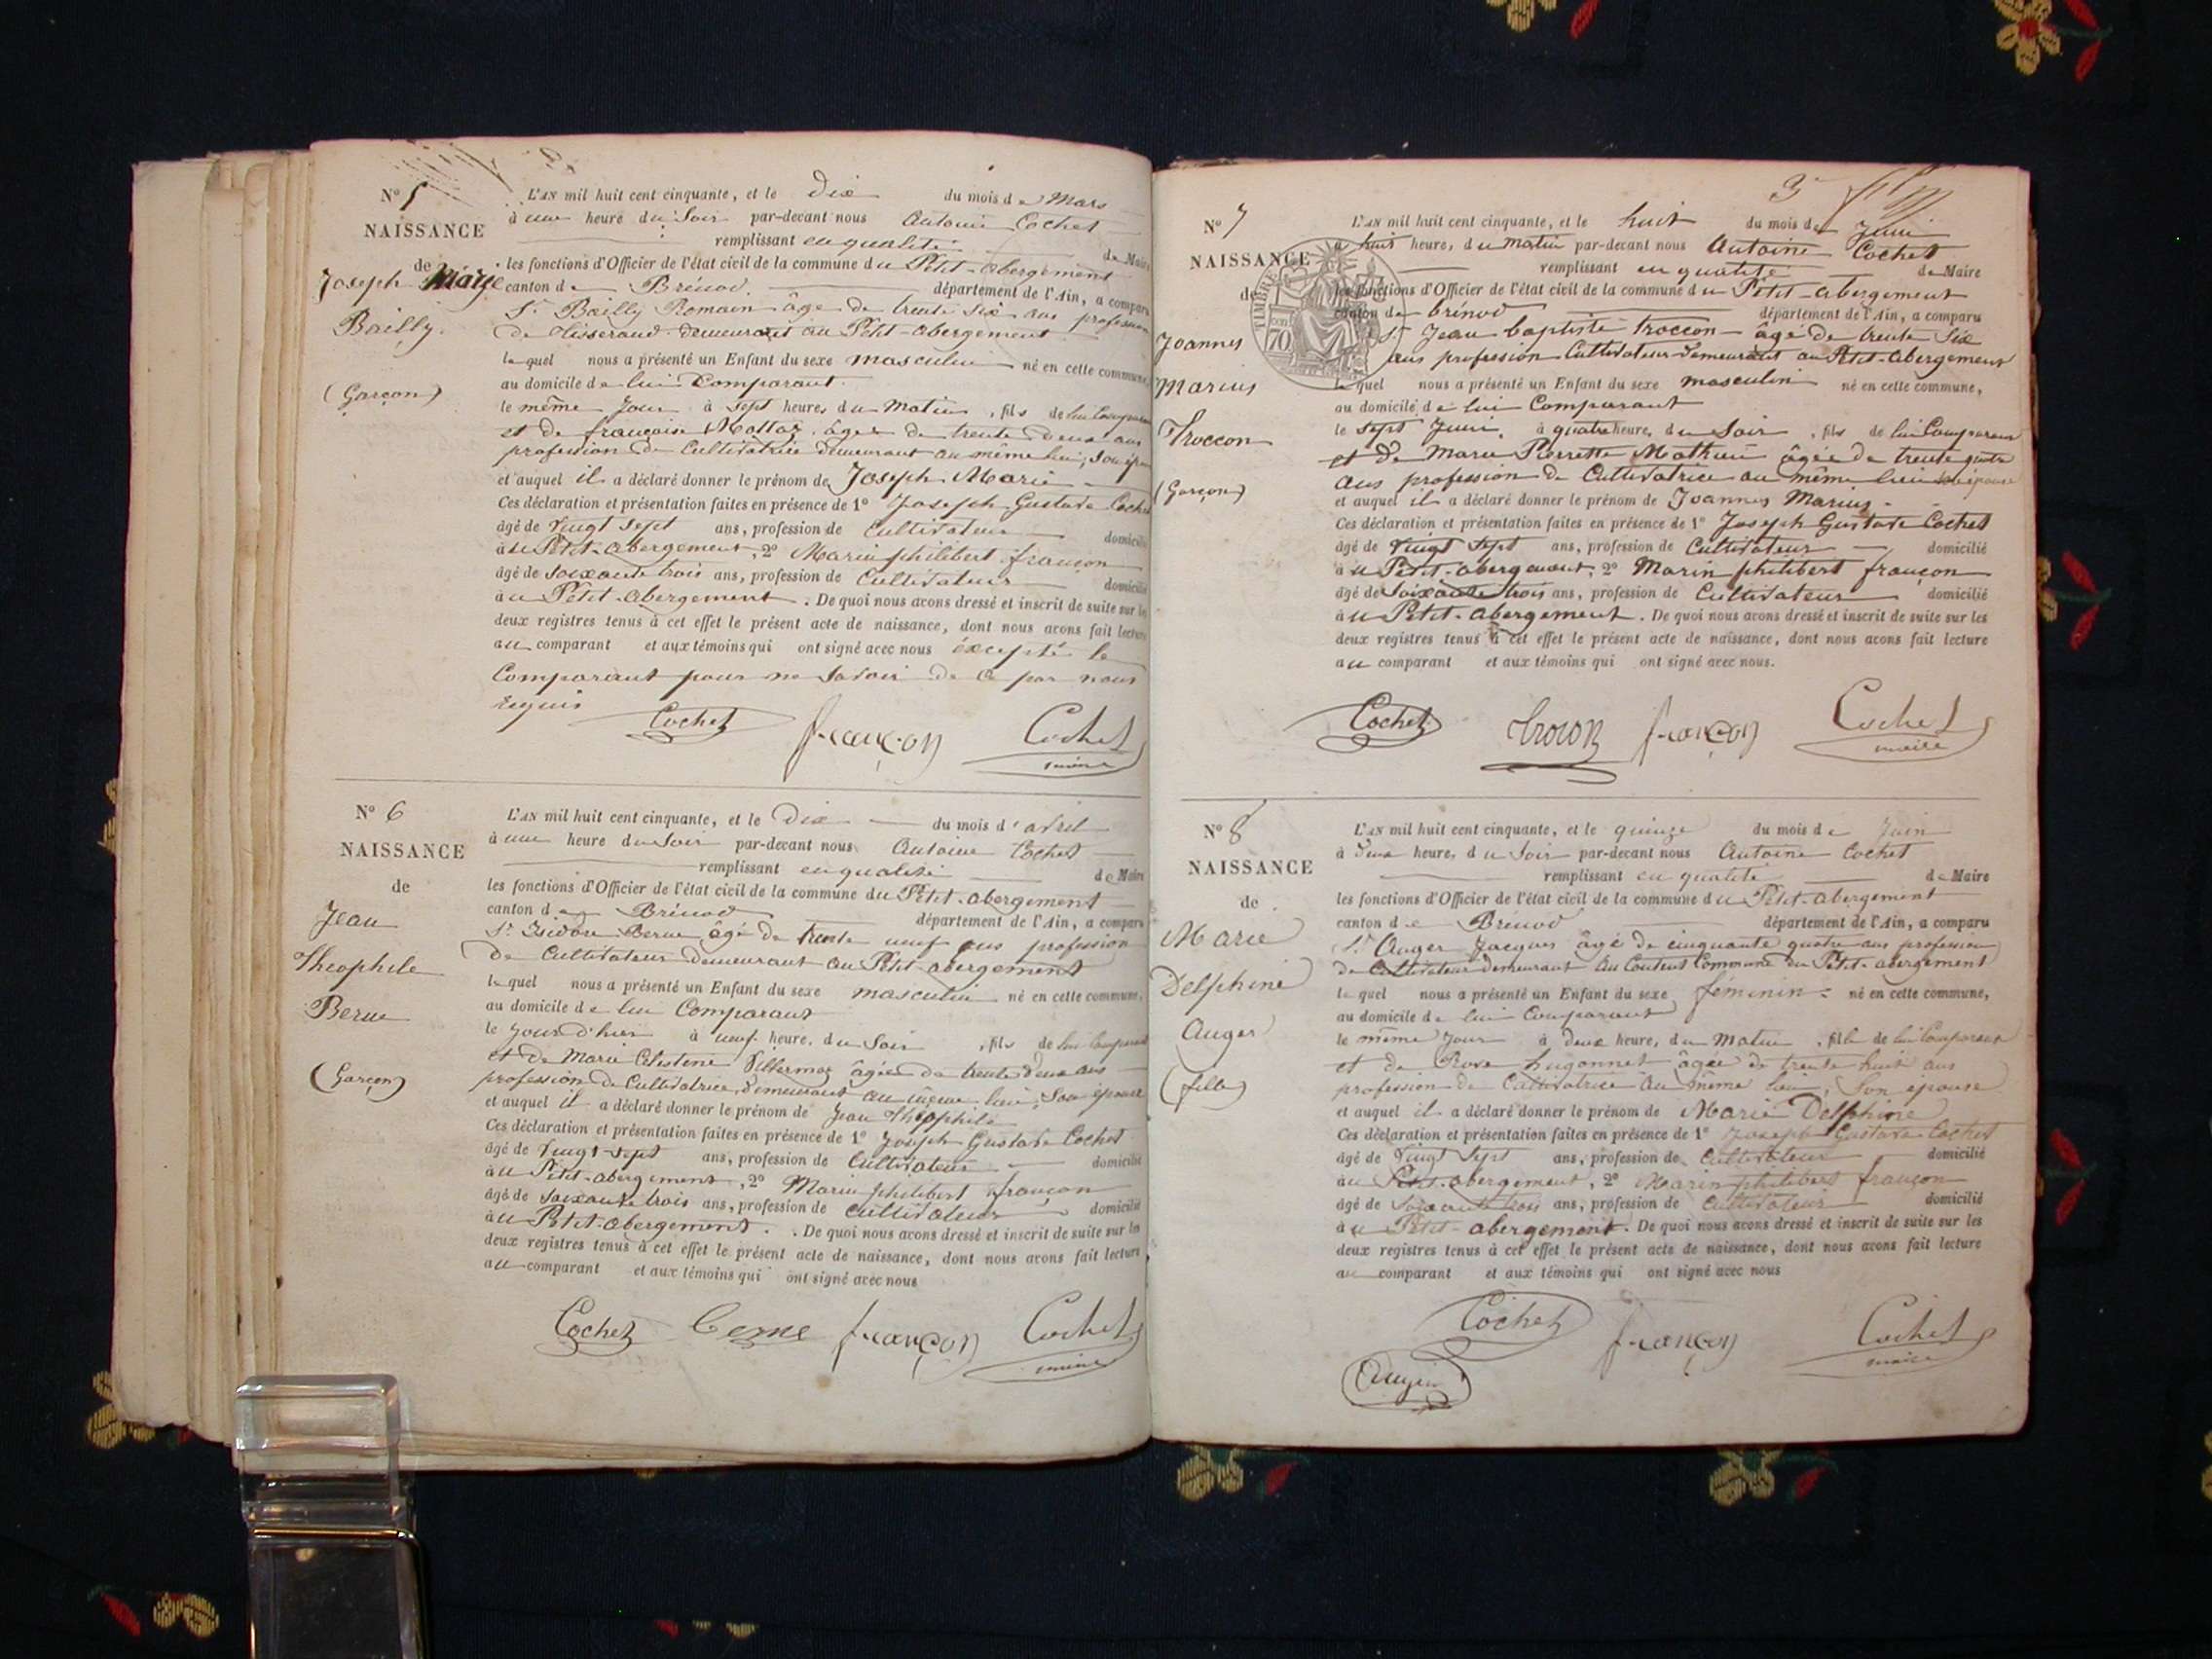 N° 5
NAISSANCE
de
Joseph Marie
Bailly.
(Garçon)
L'AN mil huit cent cinquante, et le Dix du mois de Mars
à une heure du Soir par-devant nous Antoine Cochet
remplissant en qualité de Maire
les fonctions d'Officier de l'état civil de la commune du Petit-abergement
canton de Brénod. département de l'Ain, a comparu
Sr Bailly Romain âgé de trente six ans profession
de tisserand demeurant au Petit-abergement
lequel nous a présenté un Enfant du sexe masculin né en cette commune,
au domicile de lui Comparant.
le même Jour à sept heures du Matin, fils de lui Comparant
et de françoise Mottaz âgée de trente deux ans
profession de Cultivatrice demeurant au même lieu; Son épouse
et auquel il a déclaré donner le prénom de Joseph Marie
Ces déclaration et présentation faites en présence de 1° Joseph Gustave Cochet
âgé de Vingt Sept ans, profession de Cultivateur domicilié
au Petit-abergement, 2° Marin philibert françon
âgé de Soixante trois ans, profession de Cultivateur domicilié
à u Petit-abergement. De quoi nous avons dressé et inscrit de suite sur les
deux registres tenus à cet effet le présent acte de naissance, dont nous avons fait lecture
au comparant et aux témoins qui ont signé avec nous excepté le
Comparant pour ne Savoir de ce par nous
requis
Cochet françon Cochet
maire
N° 6
NAISSANCE
de
Jean
Théophile
Berne
(Garçon)
L'AN mil huit cent cinquante, et le Dix du mois d'avril
à une heure du Soir par-devant nous Antoine Cochet
remplissant en qualité de Maire
les fonctions d'Officier de l'état civil de la commune du Petit-abergement
canton de Brénod département de l'Ain, a comparu
Sr Isidore Berne âgé de trente neuf ans profession
de Cultivateur demeurant au Petit-abergement
lequel nous a présenté un Enfant du sexe masculin né en cette commune,
au domicile de lui Comparant
le Jour d'hier à neuf heure, du Soir, fils de lui Comparant
et de Marie Celestine Villermoz âgée de trente deux ans
profession de Cultivatrice, demeurant au même lieu; Son épouse
et auquel il a déclaré donner le prénom de Jean Théophile
Ces déclaration et présentation faites en présence de 1° Joseph Gustave Cochet
âgé de Vingt-sept ans, profession de Cultivateur domicilié
au Petit-abergement, 2° Marin philibert françon
âgé de soixante trois ans, profession de cultivateur domicilié
à u Petit-abergement. De quoi nous avons dressé et inscrit de suite sur les
deux registres tenus à cet effet le présent acte de naissance, dont nous avons fait lecture
au comparant et aux témoins qui ont signé avec nous
Cochet Berne françon Cochet
maire
3
N° 7
NAISSANCE
de
Joannes
Marius
Troccon
(Garçon)
TIMBRE
70
L'AN mil huit cent cinquante, et le huit du mois de Juin
à huit heures, du matin par-devant nous Antoine Cochet
remplissant en qualité de Maire
les fonctions d'Officier de l'état civil de la commune du Petit-abergement
canton de brénod département de l'Ain, a comparu
Sr Jean baptiste troccon âgé de trente Six
ans profession Cultivateur demeurant au Petit-abergement
lequel nous a présenté un Enfant du sexe masculin né en cette commune,
au domicile de lui Comparant
le sept Juin, à quatre heure, du Soir, fils de lui Comparant
et de Marie Pierrette Mathieu âgée de trente quatre
ans profession de Cultivatrice au même lieu son épouse
et auquel il a déclaré donner le prénom de Joannes Marius
Ces déclaration et présentation faites en présence de 1° Joseph Gustave Cochet
âgé de Vingt Sept ans, profession de Cultivateur domicilié
au Petit-abergement, 2° Marin philibert françon
âgé de Soixante trois ans, profession de Cultivateur domicilié
à u Petit-abergement. De quoi nous avons dressé et inscrit de suite sur les
deux registres tenus à cet effet le présent acte de naissance, dont nous avons fait lecture
au comparant et aux témoins qui ont signé avec nous.
Cochet trocon françon Cochet
maire
N° 8
NAISSANCE
de
Marie
Delphine
Auger
(fille)
L'AN mil huit cent cinquante, et le quinze du mois de Juin
à deux heures, du Soir par-devant nous Antoine Cochet
remplissant en qualité de Maire
les fonctions d'Officier de l'état civil de la commune du Petit-abergement
canton de Brénod département de l'Ain, a comparu
Sr Auger Jacques âgé de cinquante quatre ans profession
de Cultivateur demeurant au Commune du Petit-abergement
lequel nous a présenté un Enfant du sexe féminin né en cette commune,
au domicile de lui Comparant
le même Jour à deux heure, du Matin, fille de lui Comparant
et de Rose hugonnet âgée de trente huit ans
profession de Cultivatrice au même lieu; Son épouse
et auquel il a déclaré donner le prénom de Marie Delphine
Ces déclaration et présentation faites en présence de 1° Joseph Gustave Cochet
âgé de Vingt Sept ans, profession de Cultivateur domicilié
au Petit-abergement, 2° Marin philibert françon
âgé de Soixante trois ans, profession de Cultivateur domicilié
à u Petit-abergement. De quoi nous avons dressé et inscrit de suite sur les
deux registres tenus à cet effet le présent acte de naissance, dont nous avons fait lecture
au comparant et aux témoins qui ont signé avec nous
Cochet françon Cochet
maire